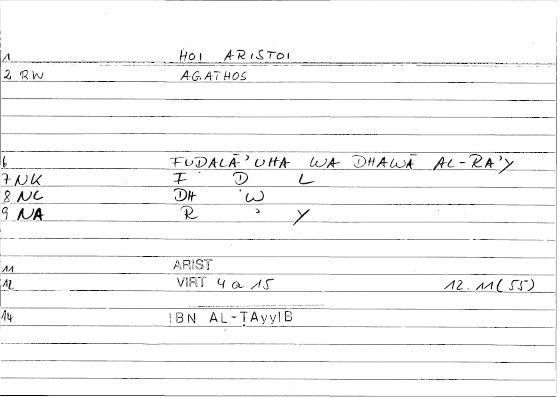 1 HOI ARISTOI
2 RW AGATHOS
6 FUDALĀ'UHA WA DHAWĀ AL-RA'Y
7 NK F D L
8 NL DH W
9 NA R ' Y
11 ARIST
12 VIRT 4 a 15 12.11(55)
14 IBN AL-ṬAyyIB